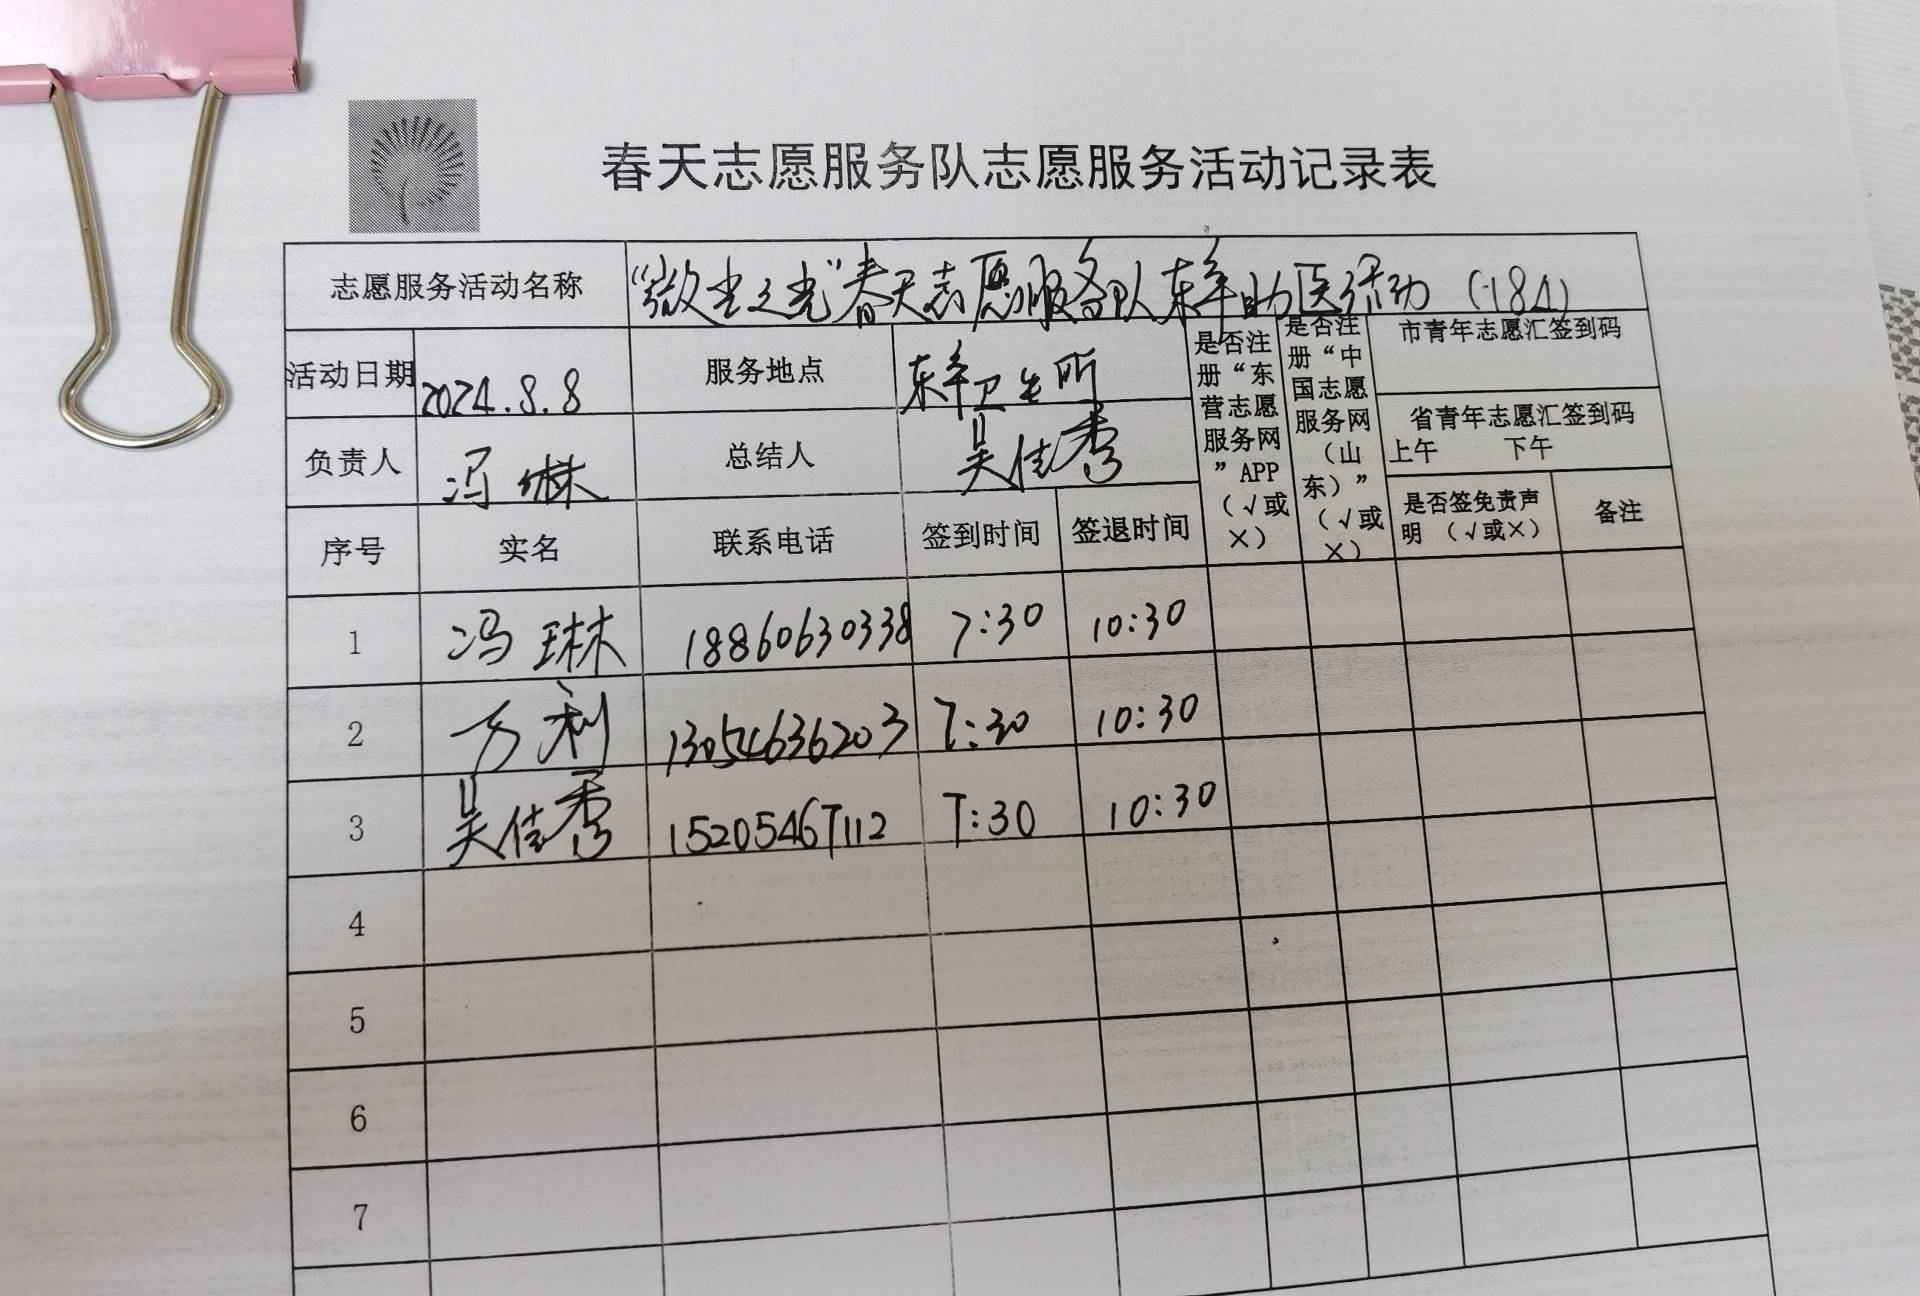 春天志愿服务队志愿服务活动记录表
志愿服务活动名称 “微尘之光”春天志愿服务队东辛助医活动(184)
活动日期 2024.8.8 服务地点 东辛卫生所
负责人 冯琳 总结人 吴佳秀
是否注册“东营志愿服务网”APP(√或×)
是否注册“中国志愿服务网(山东)”(√或×)
市青年志愿汇签到码
省青年志愿汇签到码
上午 下午
序号 实名 联系电话 签到时间 签退时间 是否签免责声明 (√或×) 备注
1 冯琳 18860630338 7:30 10:30
2 万利 13054636203 7:30 10:30
3 吴佳秀 15205467112 7:30 10:30
4
5
6
7